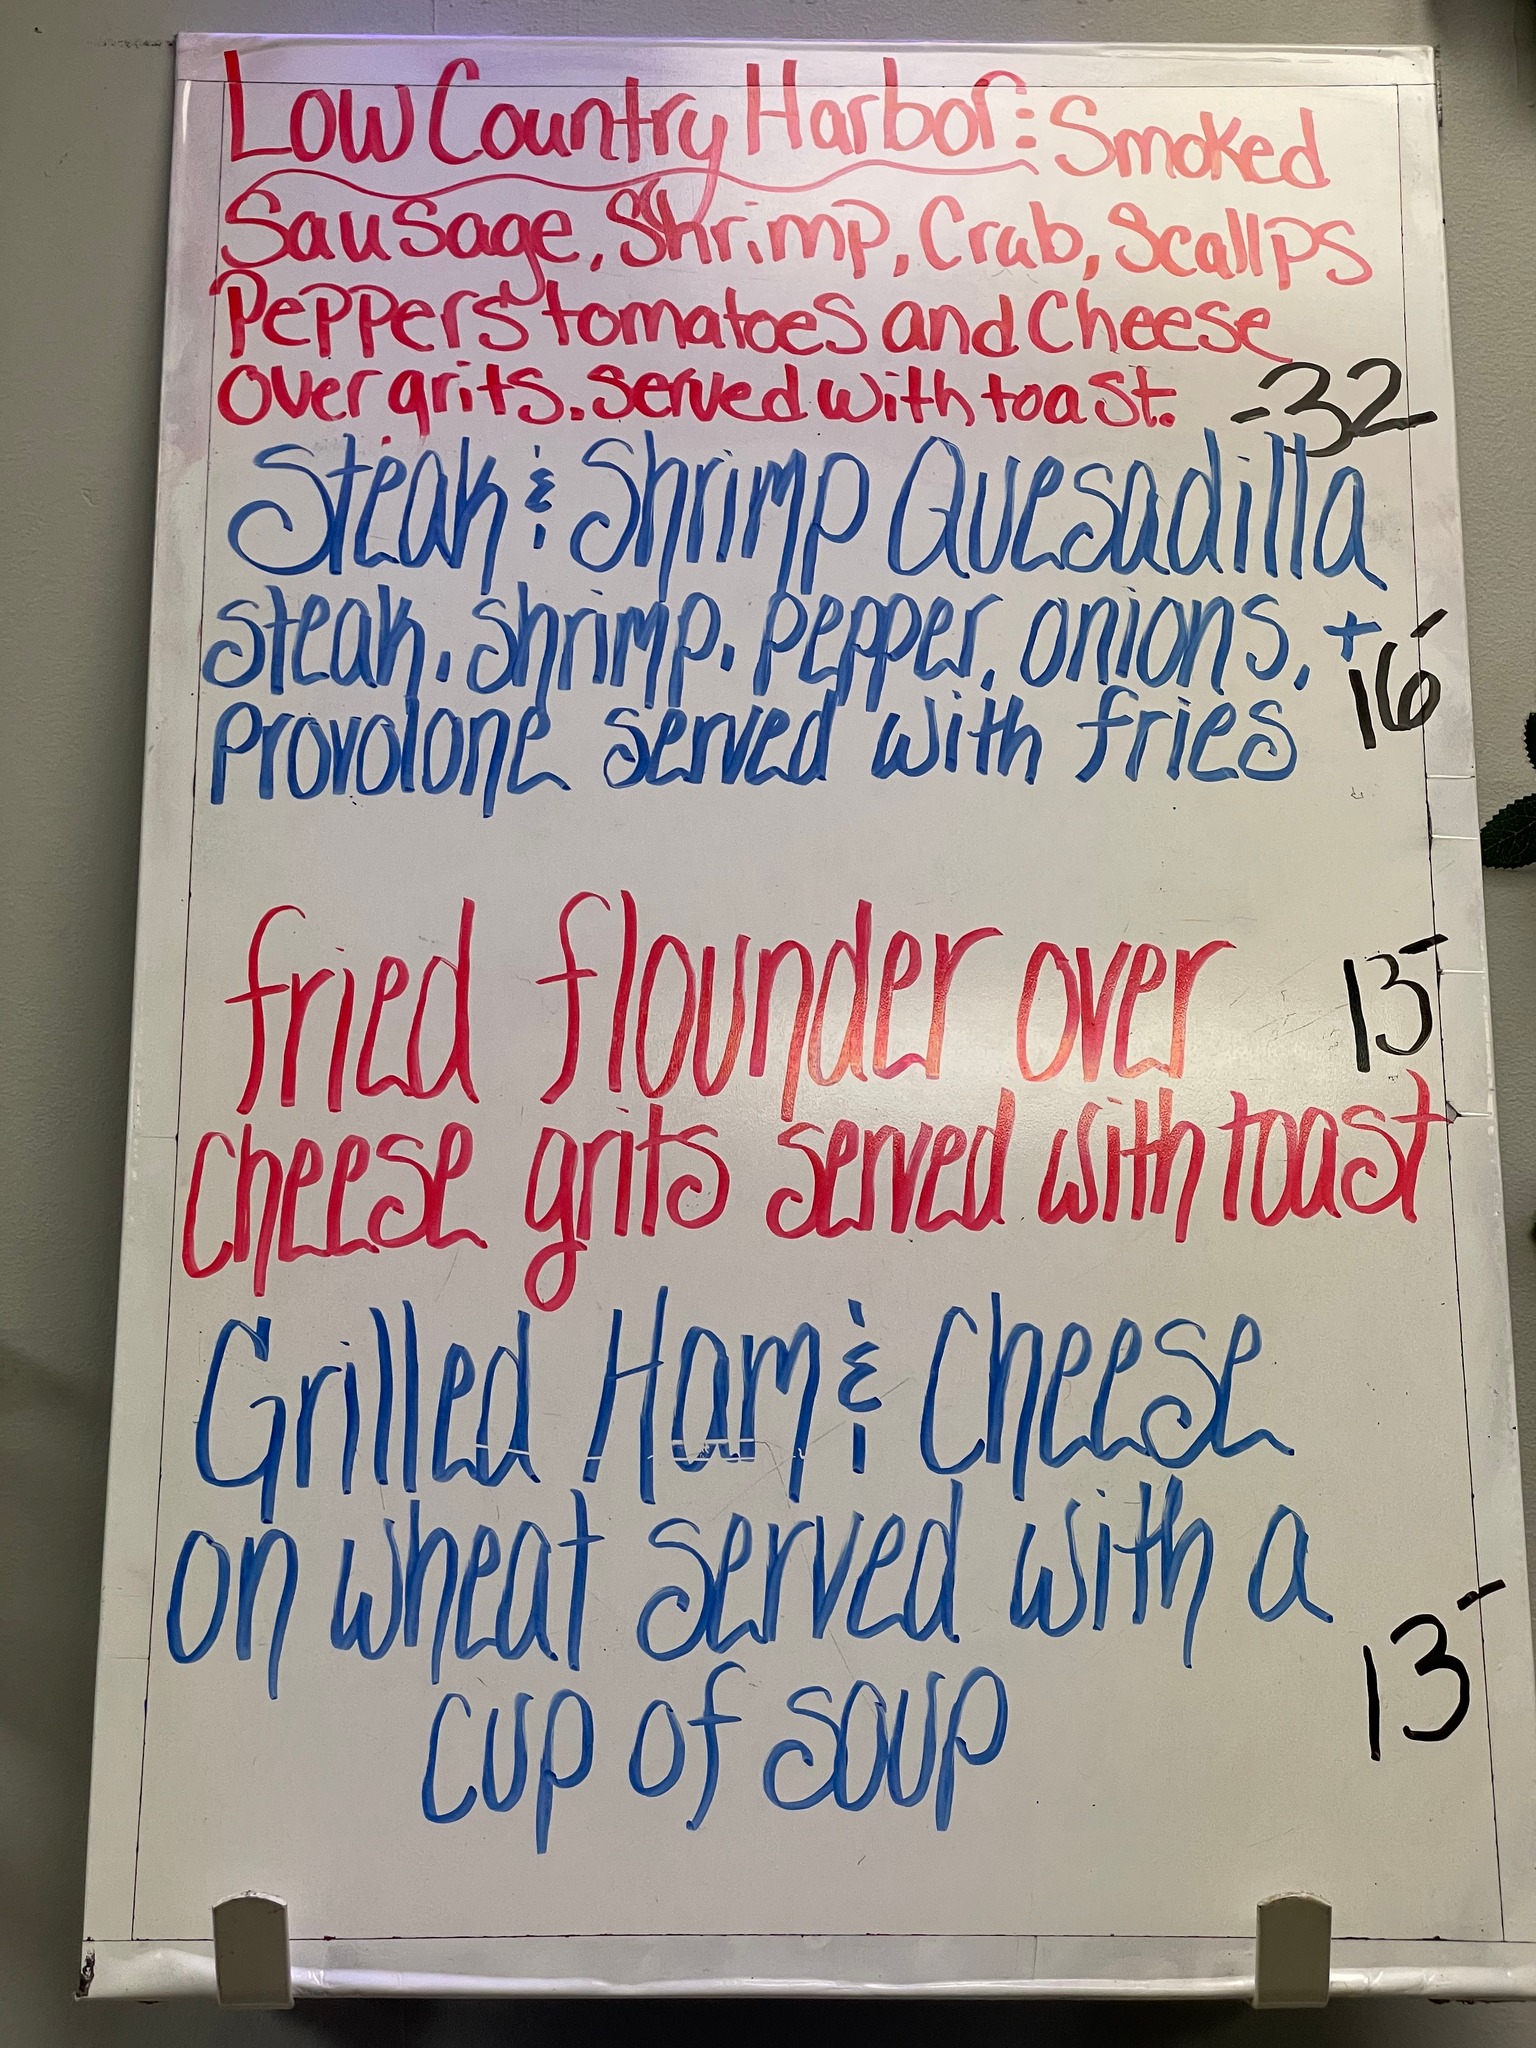 Low Country Harbor: Smoked
Sausage, Shrimp, Crab, Scallps
Peppers tomatoes and Cheese
over grits. served with toast. -32-
Steak & Shrimp Quesadilla
steak, shrimp, pepper, onions, +
provolone served with fries 16-
fried flounder over 13-
cheese grits served with toast
Grilled Ham & Cheese
on wheat served with a
cup of soup 13-